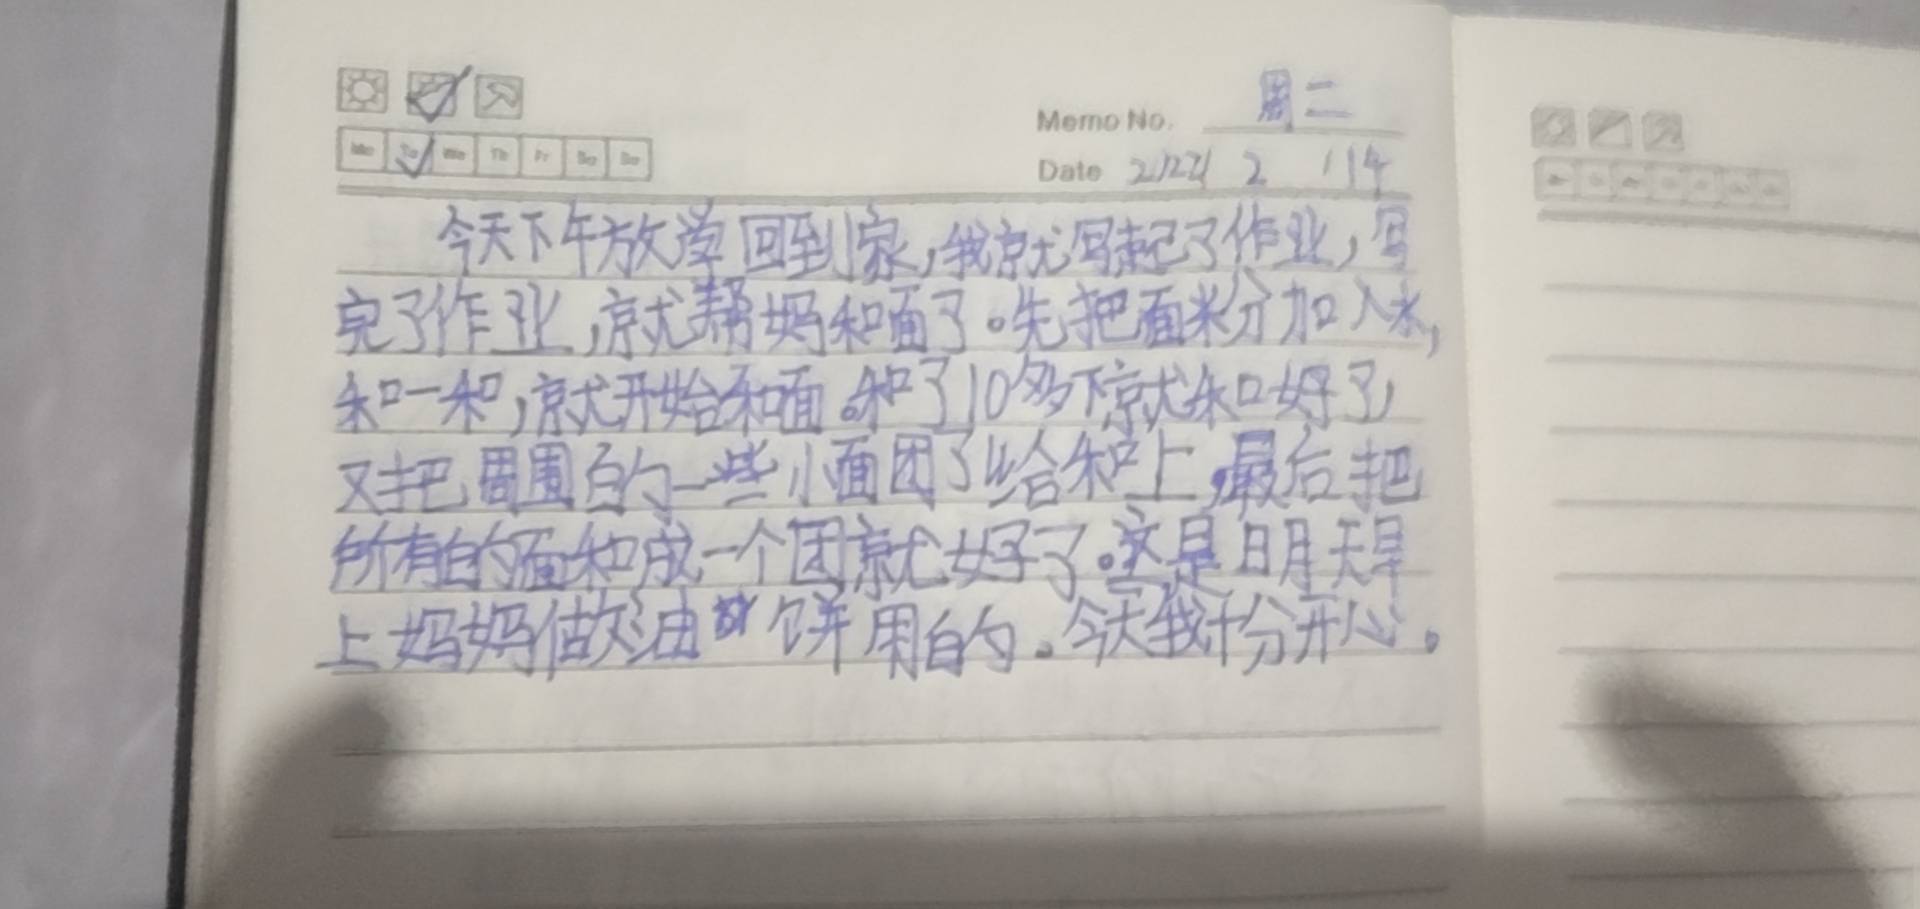 Memo No. 周二
Mo Tu We Th Fr Sa Su
Date 2 14
今天下午放学回到家,我就写起了作业,写
完了作业,就帮妈和面了。先把面粉加入水,
和一和,就开始和面。和了10多下就和好了,
又把周围的一些小面团了给和上,最后把
所有的面和成一个团就好了。这是明天早
上妈妈做油饼用的。今天我十分开心。